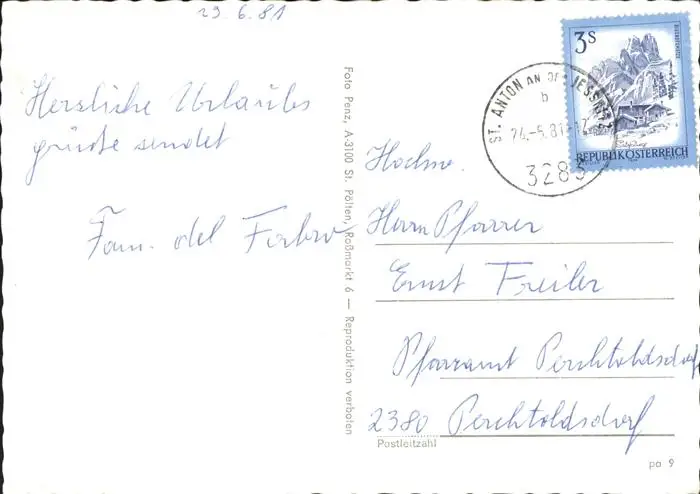 29.6.81
Herzliche Urlaubs
grüße sendet
Fam. del Fabro
Foto Penz, A-3100 St. Pölten, Roßmarkt 6 — Reproduktion verboten
3S
REPUBLIK ÖSTERREICH
ST. ANTON AN DER JESSNITZ
b
3283
Hochw.
Herrn Pfarrer
Ernst Freiler
Pfarramt Perchtoldsdorf
2380 Perchtoldsdorf
Postleitzahl
pa 9